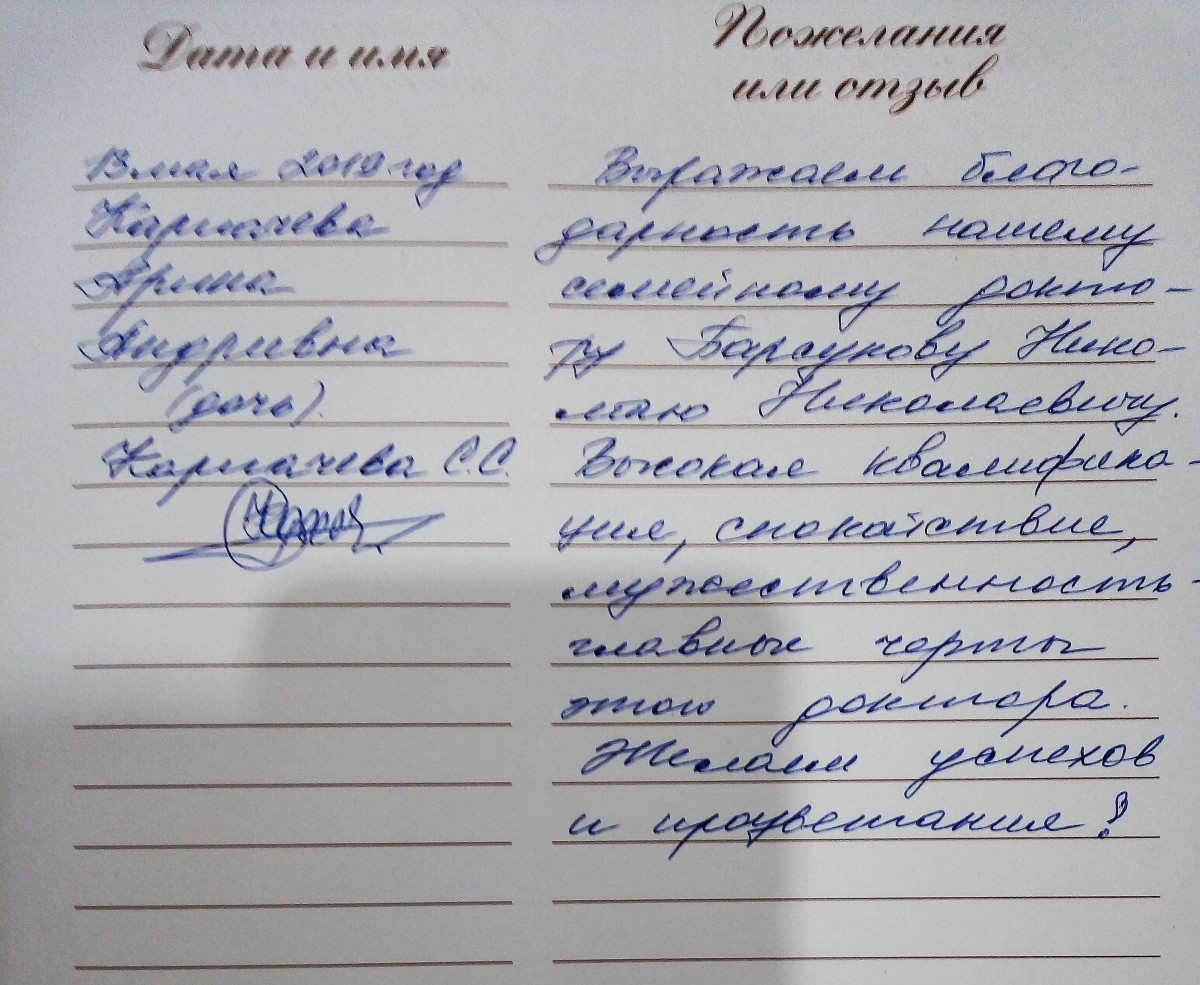 Дата и имя
Пожелания
или отзыв
13 мая 2019 год
Карпачева
Арина
Андривна
(дочь).
Карпачева С.С.
Выражаем благо-
дарность нашему
семейному докто-
ру Барсукову Нико-
лаю Николаевичу.
Высокая квалифика-
ция, спокойствие,
мужественность-
главные черты
этого доктора.
Желаем успехов
и процветания!